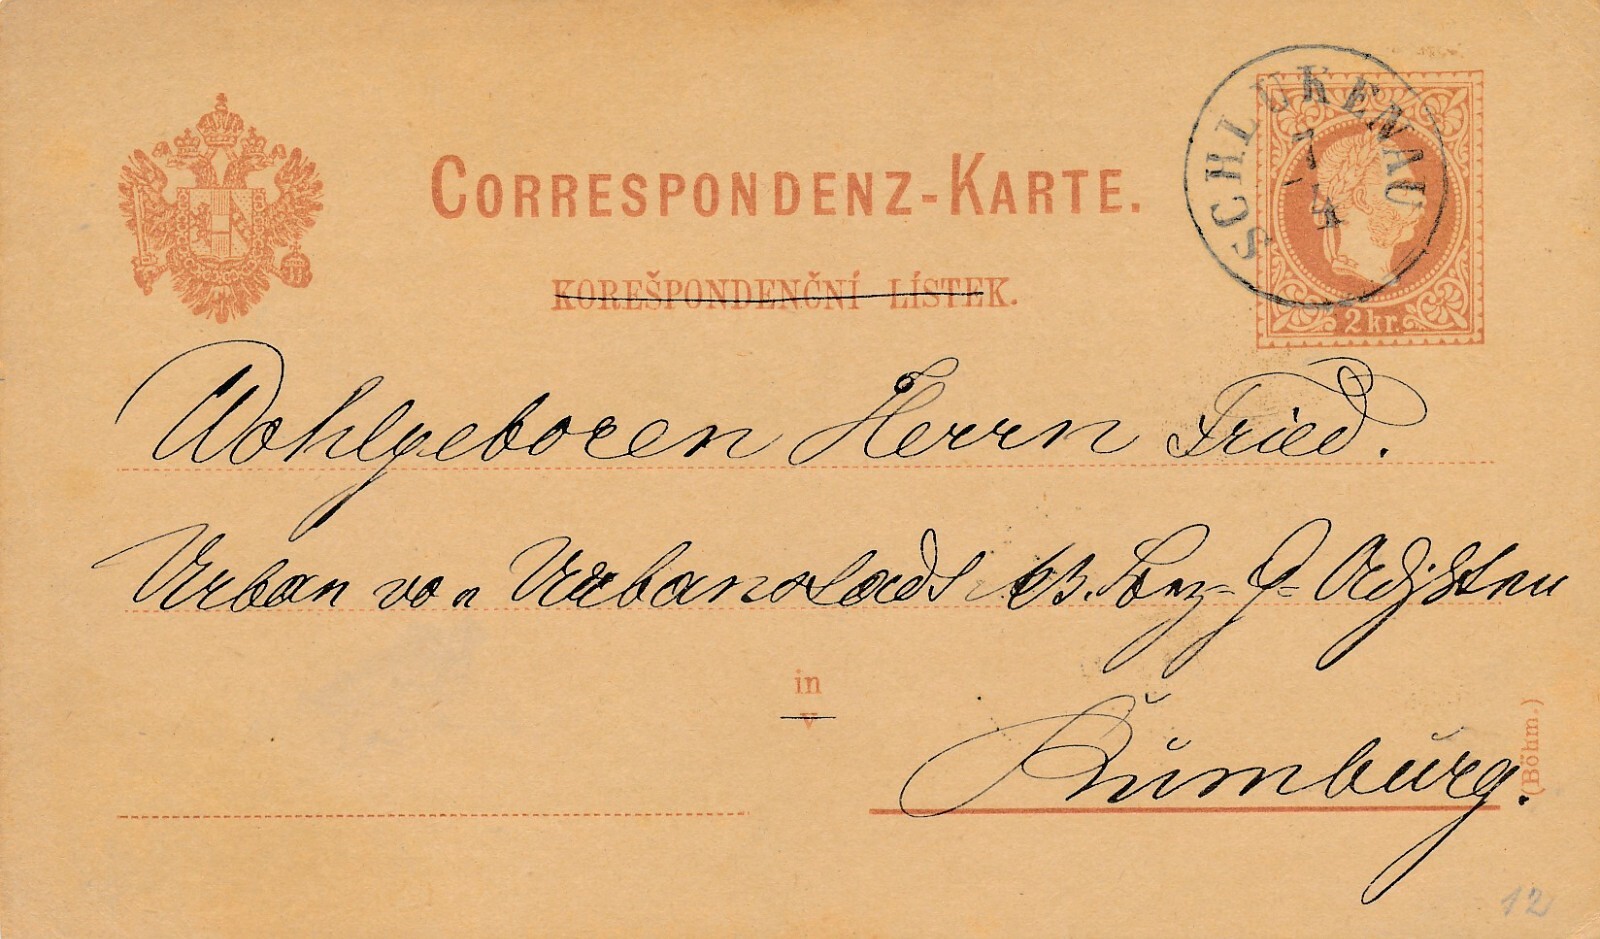 CORRESPONDENZ-KARTE.
KOREŠPONDENČNÍ LÍSTEK.
SCHLUKENAU
7
4
2 kr.
Wohlgeboren Herrn Fried.
Urban von Urbanstadt Bez- G- Adjkten
in
v
Rumburg.
(Böhm.)
12